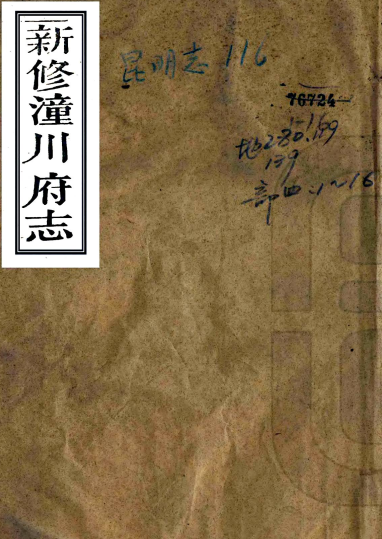 新修潼川府志
昆明志 116
76724
地280.159
139
部四:1~16